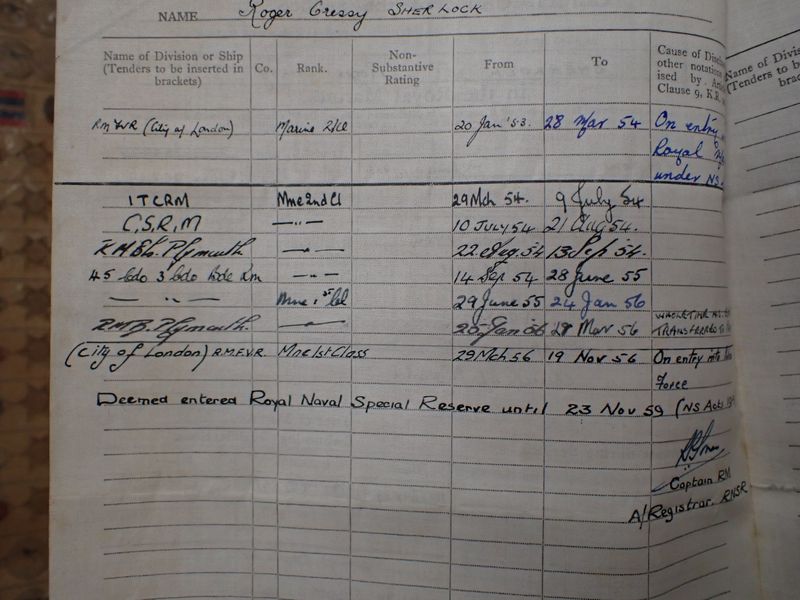 NAME Roger Cressy SHERLOCK
Name of Division or Ship (Tenders to be inserted in brackets) Co. Rank. Non-Substantive Rating From To Cause of other notations Clause 9, K.R.
RMFVR (City of London) Marine 2/Cl 20 Jan '53. 28 Mar 54 On entry
Royal
under NS.
ITCRM Mne 2nd Cl 29 Mch 54. 9 July 54
C.S.R.M —"— 10 JULY 54 21 Aug 54.
R.M.Bks. Plymouth —"— 22 Aug. 54 13 Sep 54.
45 Cdo 3 Cdo Bde RM —"— 14 Sep 54 28 June 55
— " — Mne 1st Cl 29 June 55 24 Jan 56
R.M.B. Plymouth —"— 25 Jan 56 28 Mar 56 TRANSFERRED TO
(City of London) R.M.F.V.R. Mne 1st Class 29 Mch 56 19 Nov 56 On entry into
Force
Deemed entered Royal Naval Special Reserve until 23 Nov 59 (NS Acts
Captain RM
A/Registrar. RNSR
Name of
(Tenders to be